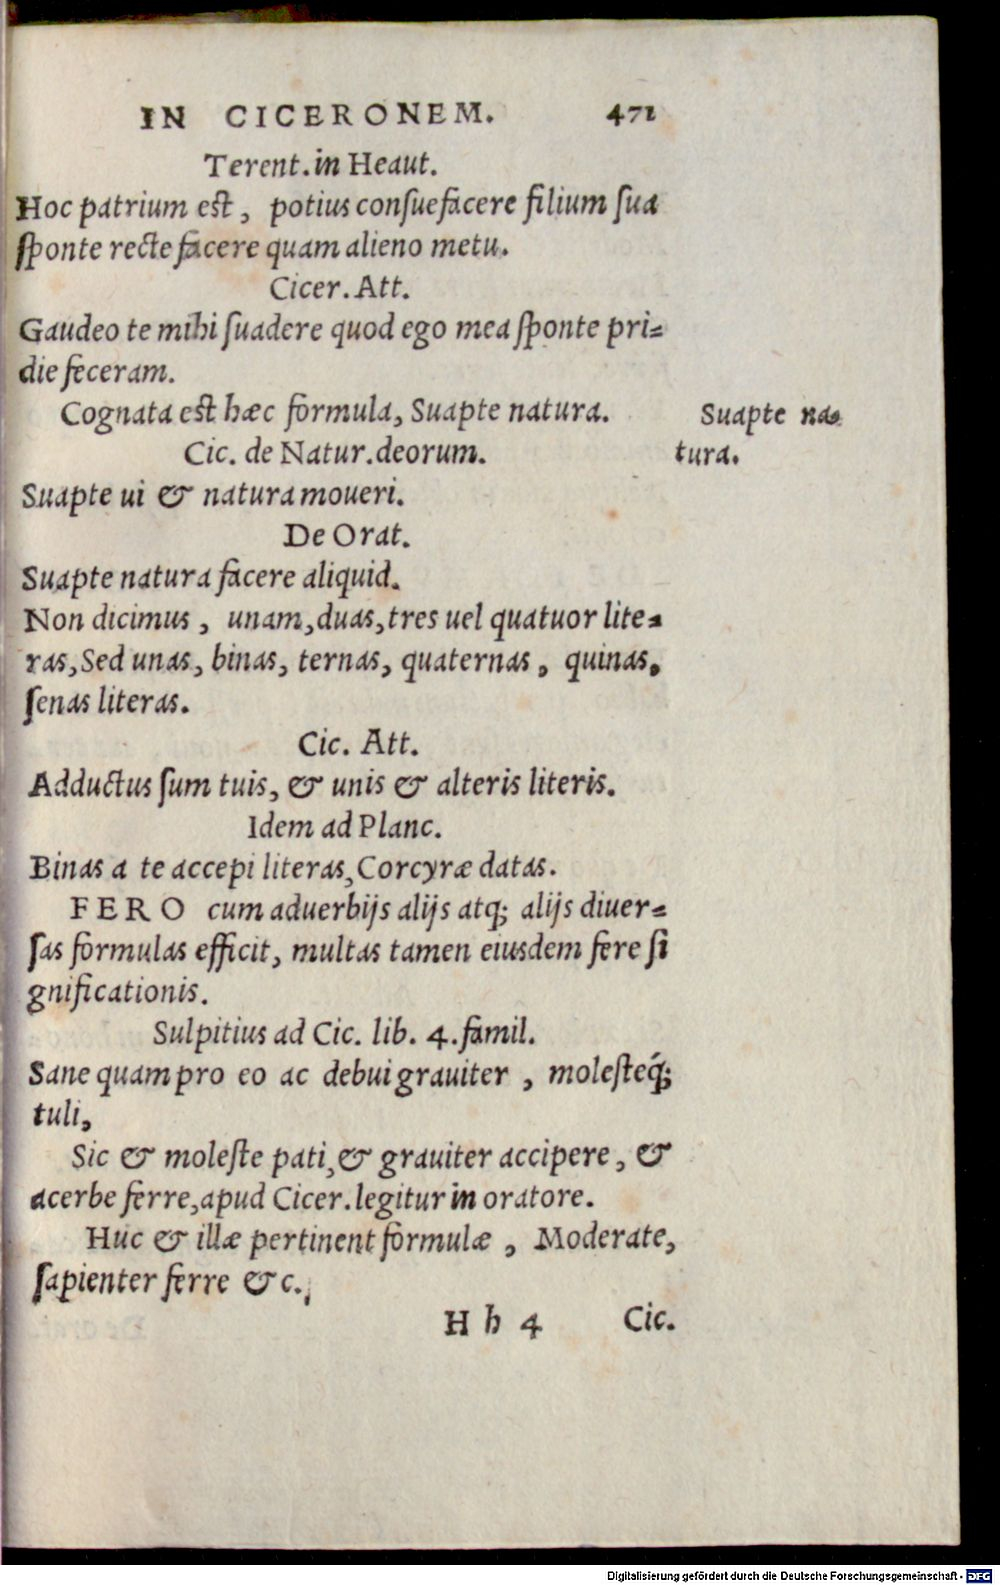 IN CICERONEM. 471
Terent. in Heaut.
Hoc patrium est, potius consuefacere filium sua
sponte recte facere quam alieno metu.
Cicer. Att.
Gaudeo te mihi suadere quod ego mea sponte pri-
die feceram.
Cognata est hæc formula, Suapte natura.
Suapte na-
tura.
Cic. de Natur. deorum.
Suapte ui & natura moueri.
De Orat.
Suapte natura facere aliquid.
Non dicimus, unam, duas, tres uel quatuor lite-
ras, Sed unas, binas, ternas, quaternas, quinas,
senas literas.
Cic. Att.
Adductus sum tuis, & unis & alteris literis.
Idem ad Planc.
Binas a te accepi literas, Corcyræ datas.
FERO cum aduerbijs alijs atq; alijs diuer-
sas formulas efficit, multas tamen eiusdem fere si
gnificationis.
Sulpitius ad Cic. lib. 4. famil.
Sane quam pro eo ac debui grauiter, molesteq́;
tuli,
Sic & moleste pati, & grauiter accipere, &
acerbe ferre, apud Cicer. legitur in oratore.
Huc & illæ pertinent formulæ, Moderate,
sapienter ferre &c.
Hh 4 Cic.
Digitalisierung gefördert durch die Deutsche Forschungsgemeinschaft - DFG